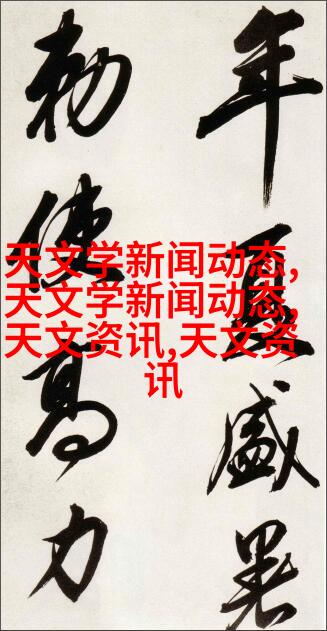 年夏盛暑
勅使高力
天文学新闻动态,
天文学新闻动态,
天文资讯,天文资
讯